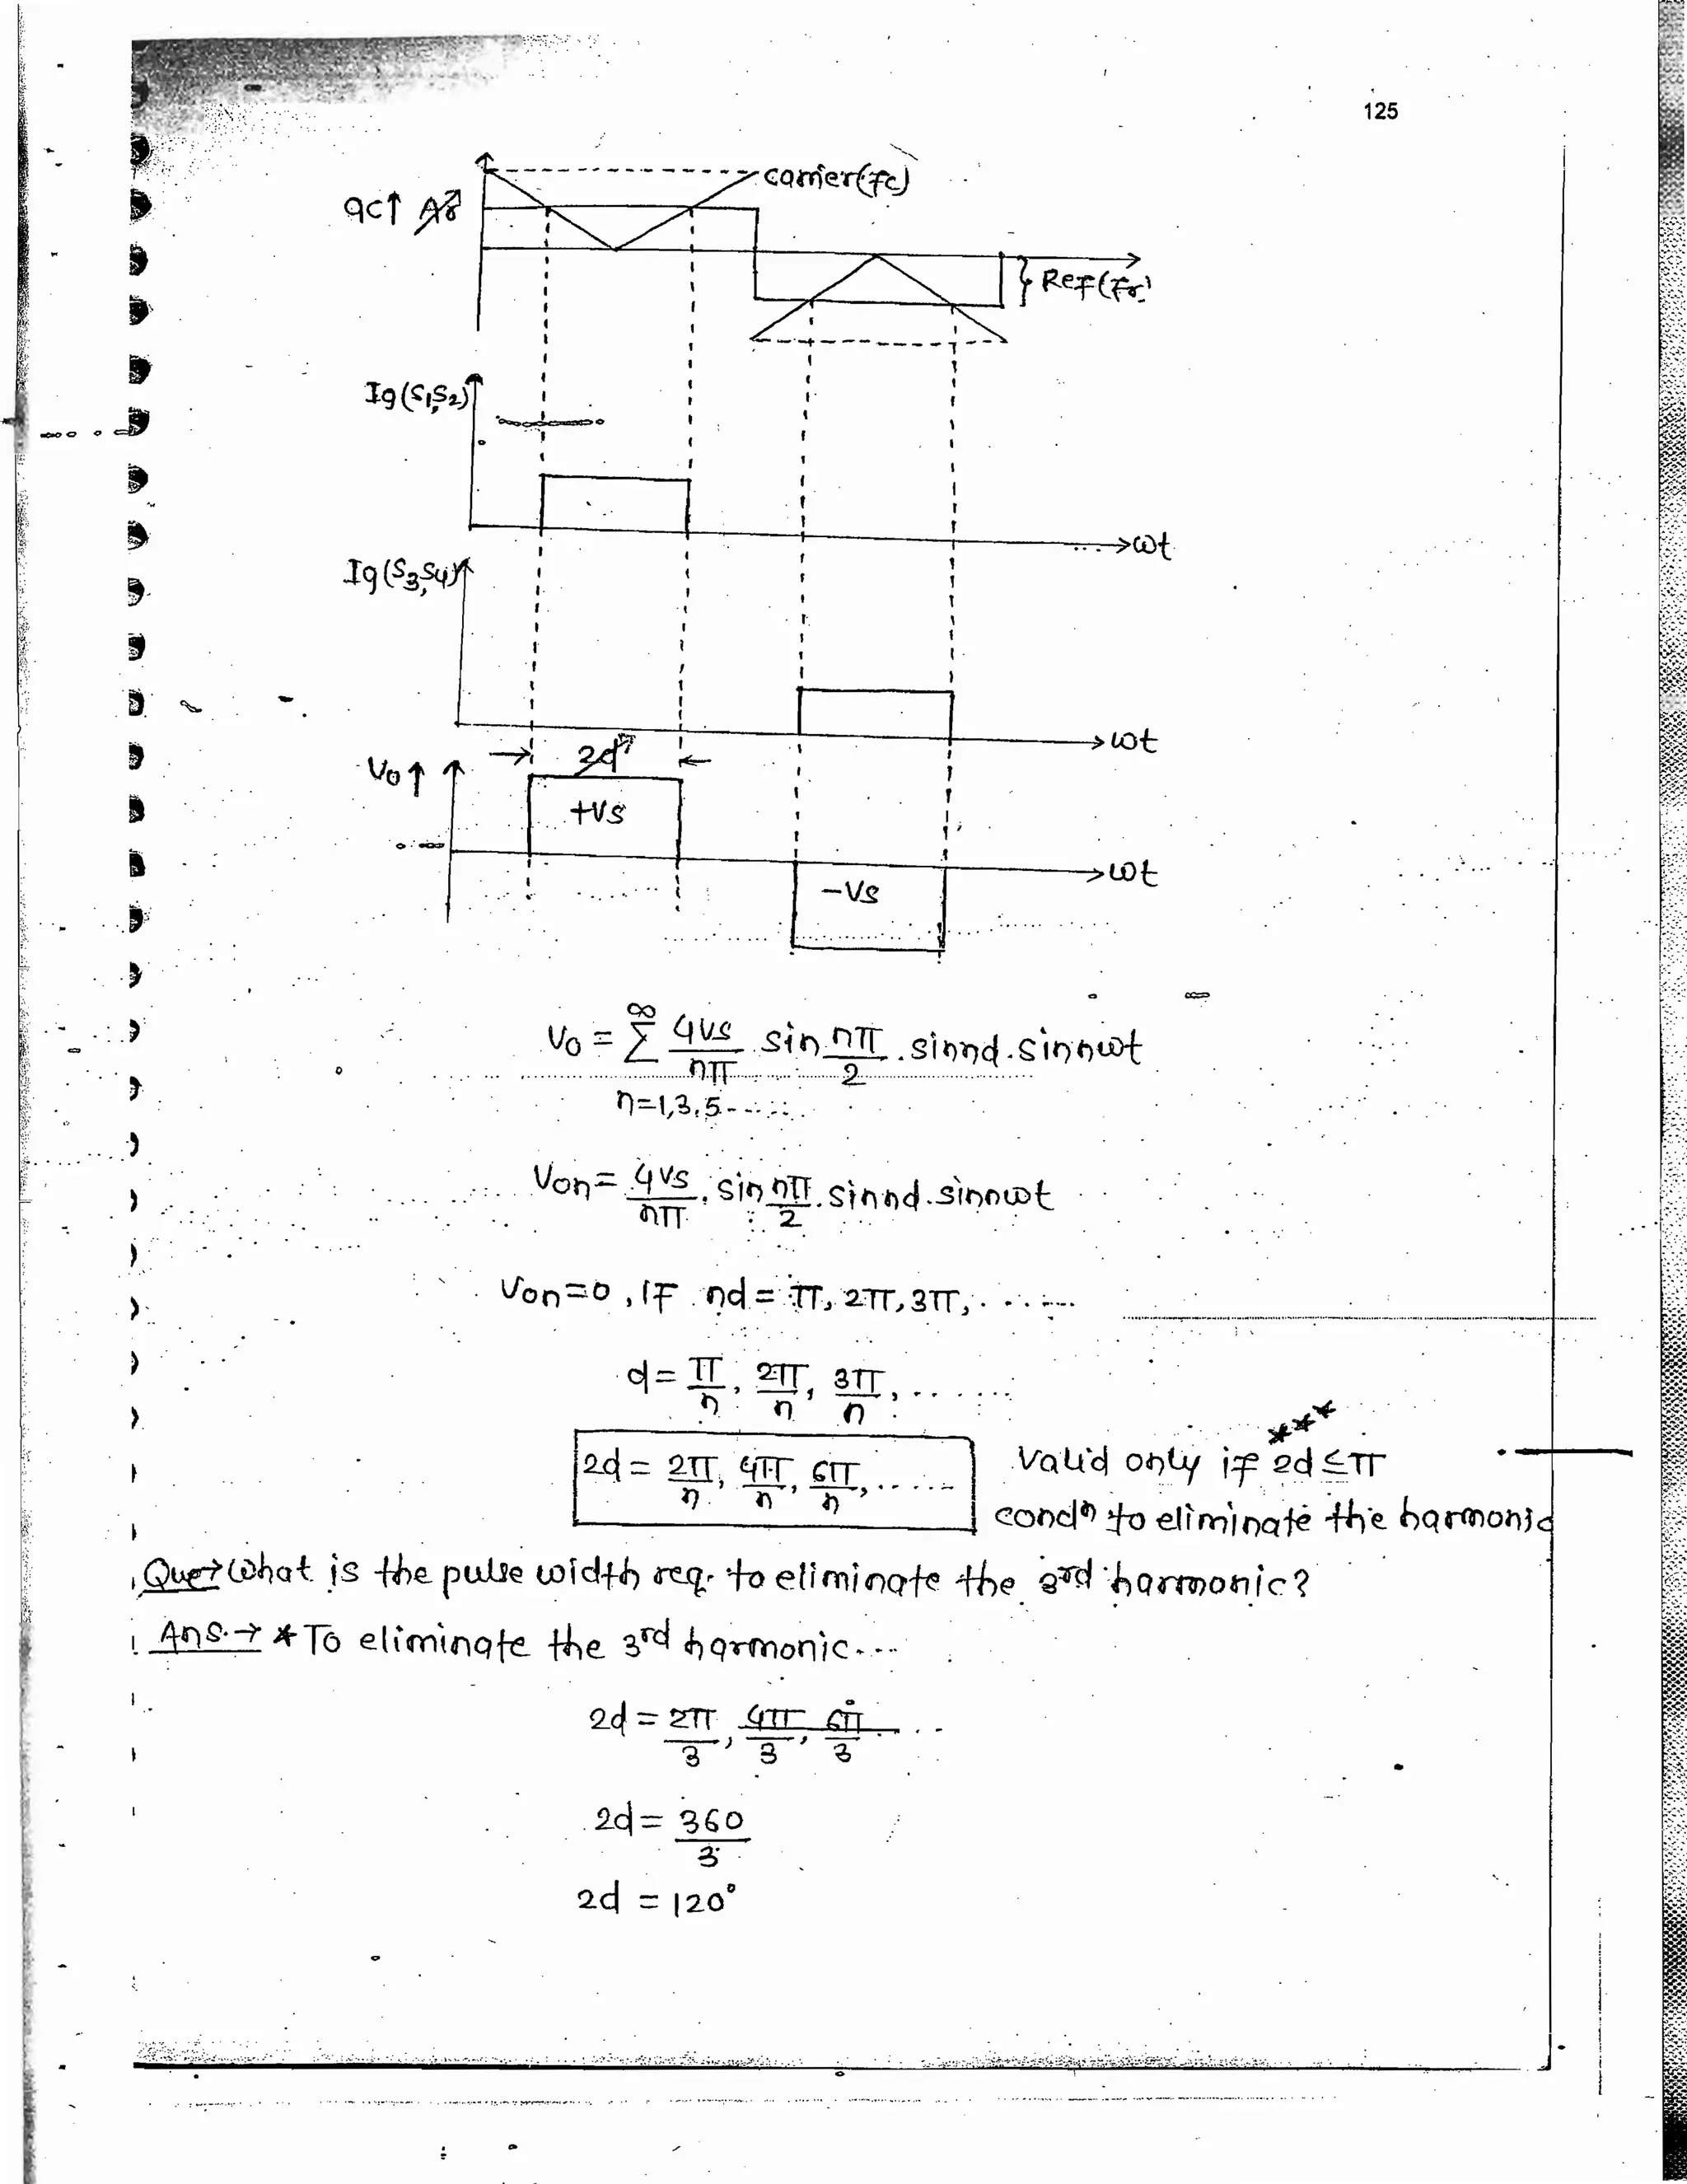 125
carrier(fc)
qc↑ Ar
Ref(fr)
Ig(S1,S2)
ωt
Ig(S3,S4)
ωt
2d
Vo↑
+Vs
ωt
-Vs
Vo = ∞ Σ 4Vs/nπ sin nπ/2 . sinnd . sinnωt
n=1,3,5-----
Von = 4Vs/nπ . sin nπ/2 . sinnd . sinnωt
Von=0, IF nd = π, 2π, 3π, ......
d = π/n, 2π/n, 3π/n, ......
***
2d = 2π/n, 4π/n, 6π/n, ...... Valid only if 2d ≤ π
condn to eliminate the harmonic
Que→ What is the pulse width req. to eliminate the 3rd harmonic?
Ans.→ * To eliminate the 3rd harmonic....
2d = 2π/3, 4π/3, 6π/3 ...
2d = 360/3
2d = 120°